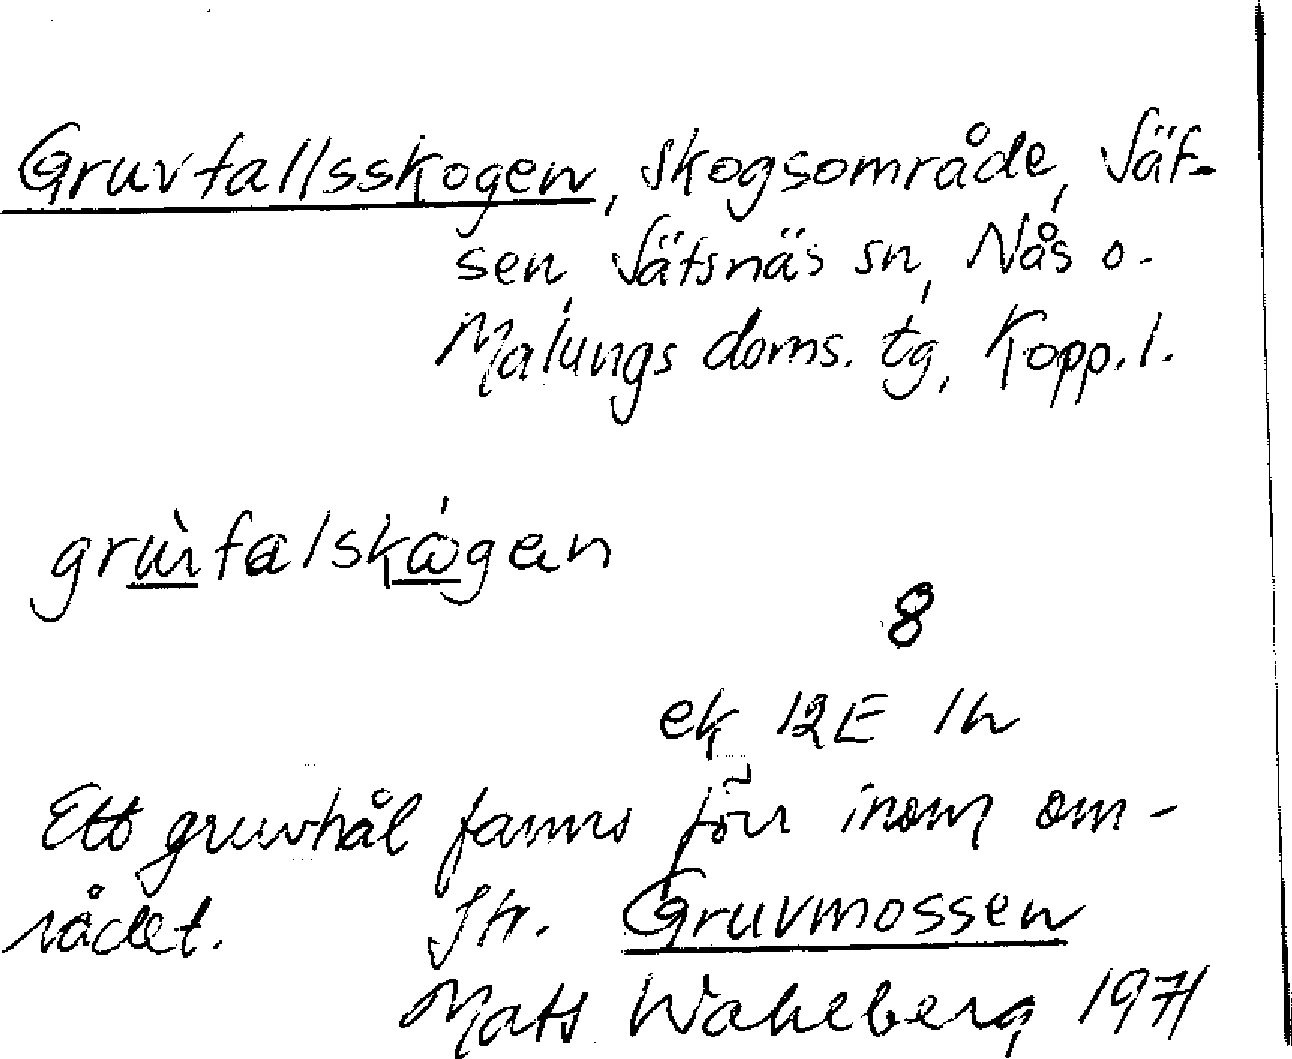 Gruvfallsskogen, skogsområde, Säf-
sen, Säfsnäs sn, Nås o.
Malungs doms. tg, Kopp. l.
grùfalskógen
8
ek 12E 1h
Ett gruvhål fanns förr inom om-
rådet. Jfr. Gruvmossen
Mats Wahlberg 1971